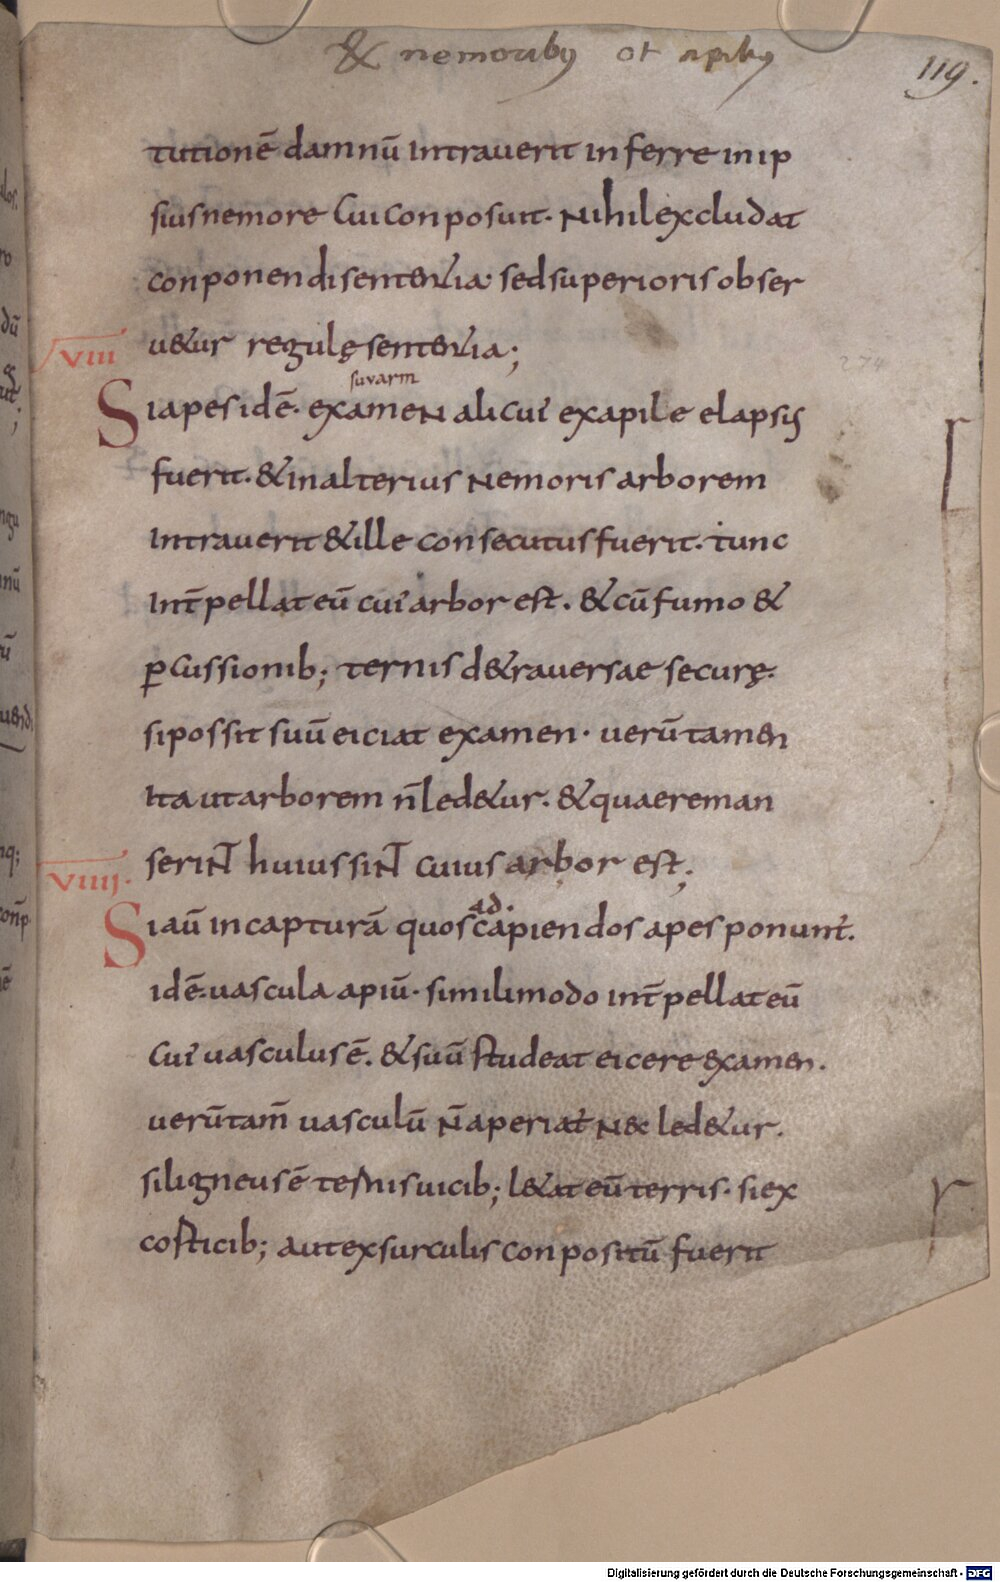 & nemoribꝰ et apibꝰ
119.
tutionē damnū Intrauerit inferre in ip
sius nemore Cui Conposuit. Nihil excludat
conponendi sentent&ia sed superioris obser
u&ur regulę sentent&ia;
VIII
suuarm
Si apes idē. examen alicui exapile elapsis
fuerit. & in alterius Nemoris arborem
Intrauerit & ille consecutus fuerit. tunc
Int̄pellat eū cui arbor est. & cū fumo &
ꝑcussionib; ternis d&rauersae securę.
si possit suū eiciat examen. uerūtamen
Ita ut arborem n̄ led&ur. & quae reman
serint̄ huius sint̄ cuius arbor est;
VIIII.
ad.
Si aū in capturā quos capiendos apes ponunt.
idē. uascula apiū. simili modo int̄pellat eū
Cui uasculus ē. & suū studeat eicere examen.
uerūtam̄ uasculū n̄ aperiat N&c led&ur.
si ligneus ē ternis uicib; l&at eū terris. si ex
costicib; aut ex surculis conpositū fuerit
Digitalisierung gefördert durch die Deutsche Forschungsgemeinschaft - DFG